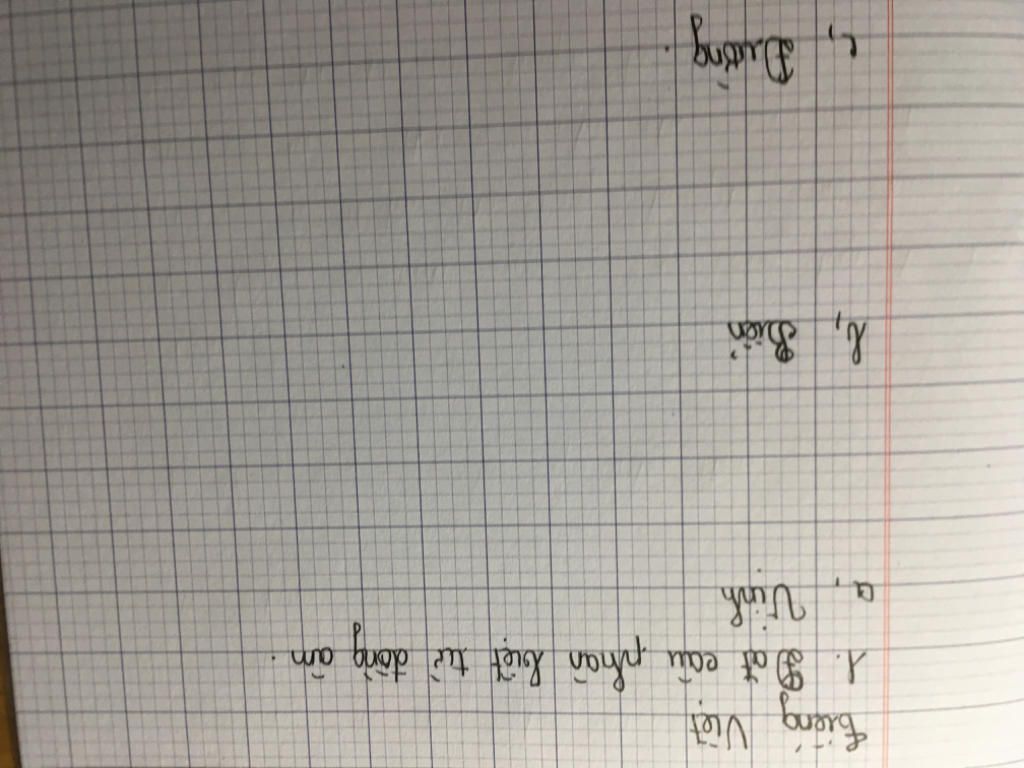 Tiếng Việt
1. Đặt câu phân biệt từ đồng âm.
a, Vinh
b, Biển
c, Đường.